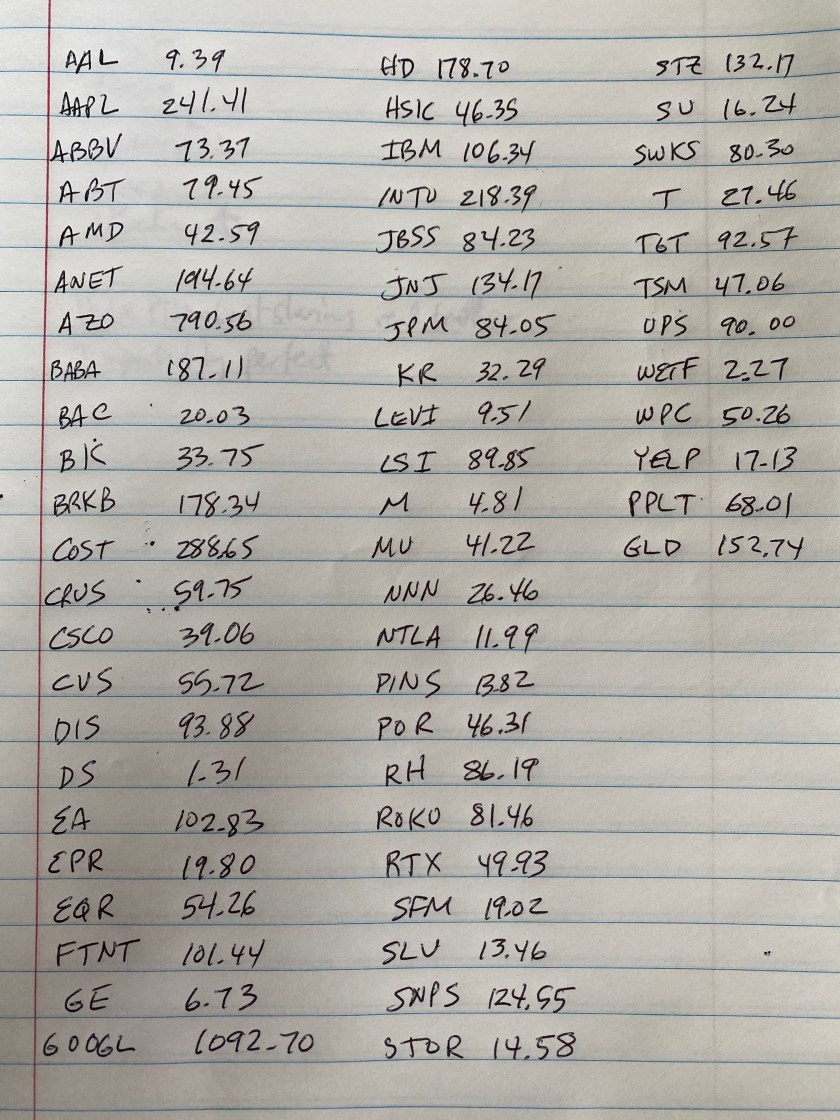 AAL 9.39
AAPL 241.41
ABBV 73.37
ABT 79.45
AMD 42.59
ANET 194.64
AZO 790.56
BABA 187.11
BAC 20.03
BK 33.75
BRKB 178.34
COST 288.65
CRUS 59.75
CSCO 39.06
CVS 55.72
DIS 93.88
DS 1.31
EA 102.83
EPR 19.80
EQR 54.26
FTNT 101.44
GE 6.73
GOOGL 1092.70
HD 178.70
HSIC 46.35
IBM 106.34
INTU 218.39
JBSS 84.23
JNJ 134.17
JPM 84.05
KR 32.29
LEVI 9.51
LSI 89.85
M 4.81
MU 41.22
NNN 26.46
NTLA 11.99
PINS 13.82
POR 46.31
RH 86.19
ROKU 81.46
RTX 49.93
SFM 19.02
SLV 13.46
SNPS 124.55
STOR 14.58
STZ 132.17
SU 16.24
SWKS 80.30
T 27.46
TGT 92.57
TSM 47.06
UPS 90.00
WETF 2.27
WPC 50.26
YELP 17.13
PPLT 68.01
GLD 152.74